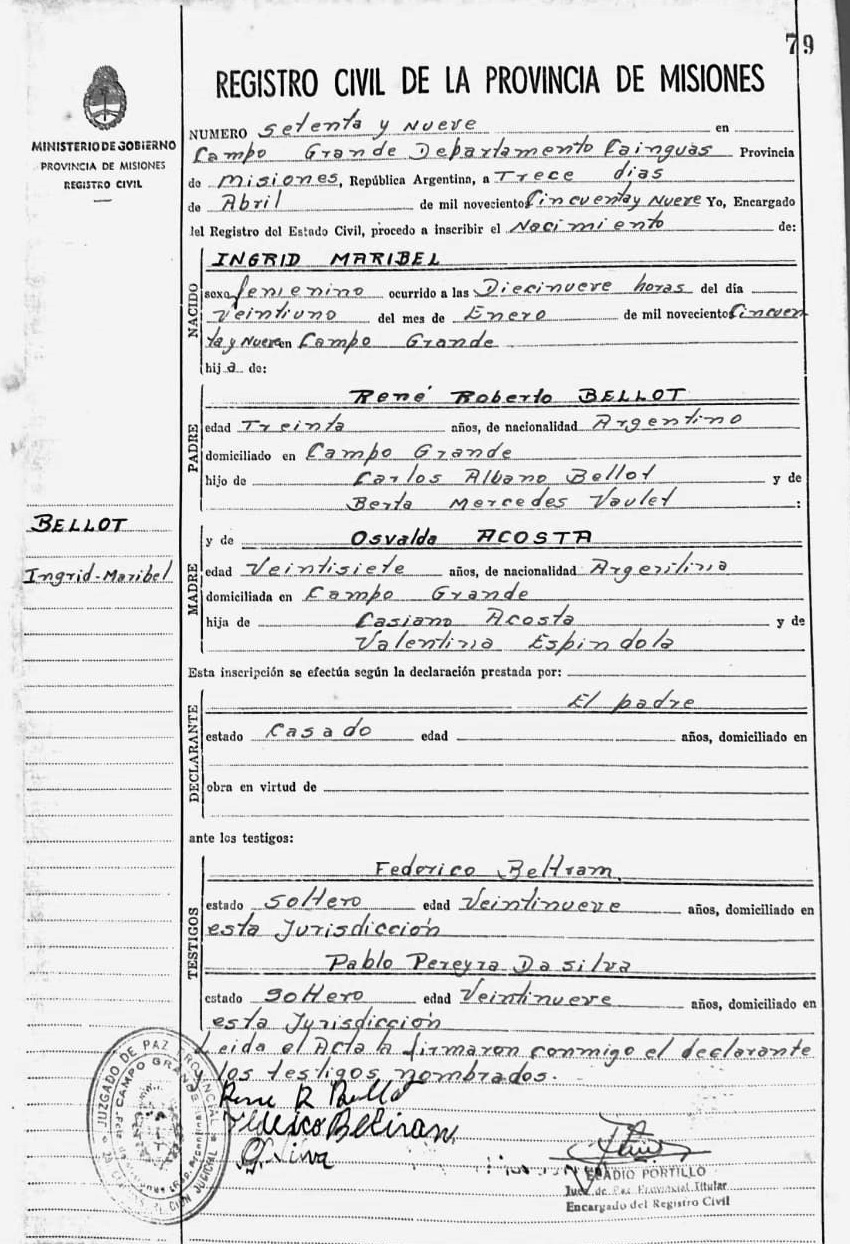 79
REGISTRO CIVIL DE LA PROVINCIA DE MISIONES
MINISTERIO DE GOBIERNO
PROVINCIA DE MISIONES
REGISTRO CIVIL
NUMERO Setenta y Nueve en
Campo Grande Departamento Cainguas Provincia
de Misiones, República Argentina, a Trece días
de Abril de mil noveciento Cincuenta y Nueve Yo, Encargado
del Registro del Estado Civil, procedo a inscribir el Nacimiento de:
NACIDO
INGRID MARIBEL
sexo femenino ocurrido a las Diecinueve horas del día
Veintiuno del mes de Enero de mil noveciento Cincuen
ta y Nueve en Campo Grande
hij a de:
PADRE
René Roberto BELLOT
edad Treinta años, de nacionalidad Argentino
domiciliado en Campo Grande
hijo de Carlos Albano Bellot y de
Berta Mercedes Vaulet :
BELLOT
Ingrid-Maribel
MADRE
y de Osvalda ACOSTA
edad Veintisiete años, de nacionalidad Argentina
domiciliada en Campo Grande
hija de Casiano Acosta y de
Valentina Espindola
Esta inscripción se efectúa según la declaración prestada por:
DECLARANTE
El padre
estado Casado edad años, domiciliado en
obra en virtud de
ante los testigos:
TESTIGOS
Federico Beltram
estado Soltero edad Veintinueve años, domiciliado en
esta Jurisdicción
Pablo Pereyra Da silva
estado Soltero edad Veintinueve años, domiciliado en
esta Jurisdicción
Leida el Acta la firmaron conmigo el declarante
los testigos nombrados.
JUZGADO DE PAZ PROVINCIAL
CAMPO GRANDE
Rene R Bello
Federico Beltran
ELADIO PORTILLO
Juez de Paz Provincial Titular
Encargado del Registro Civil